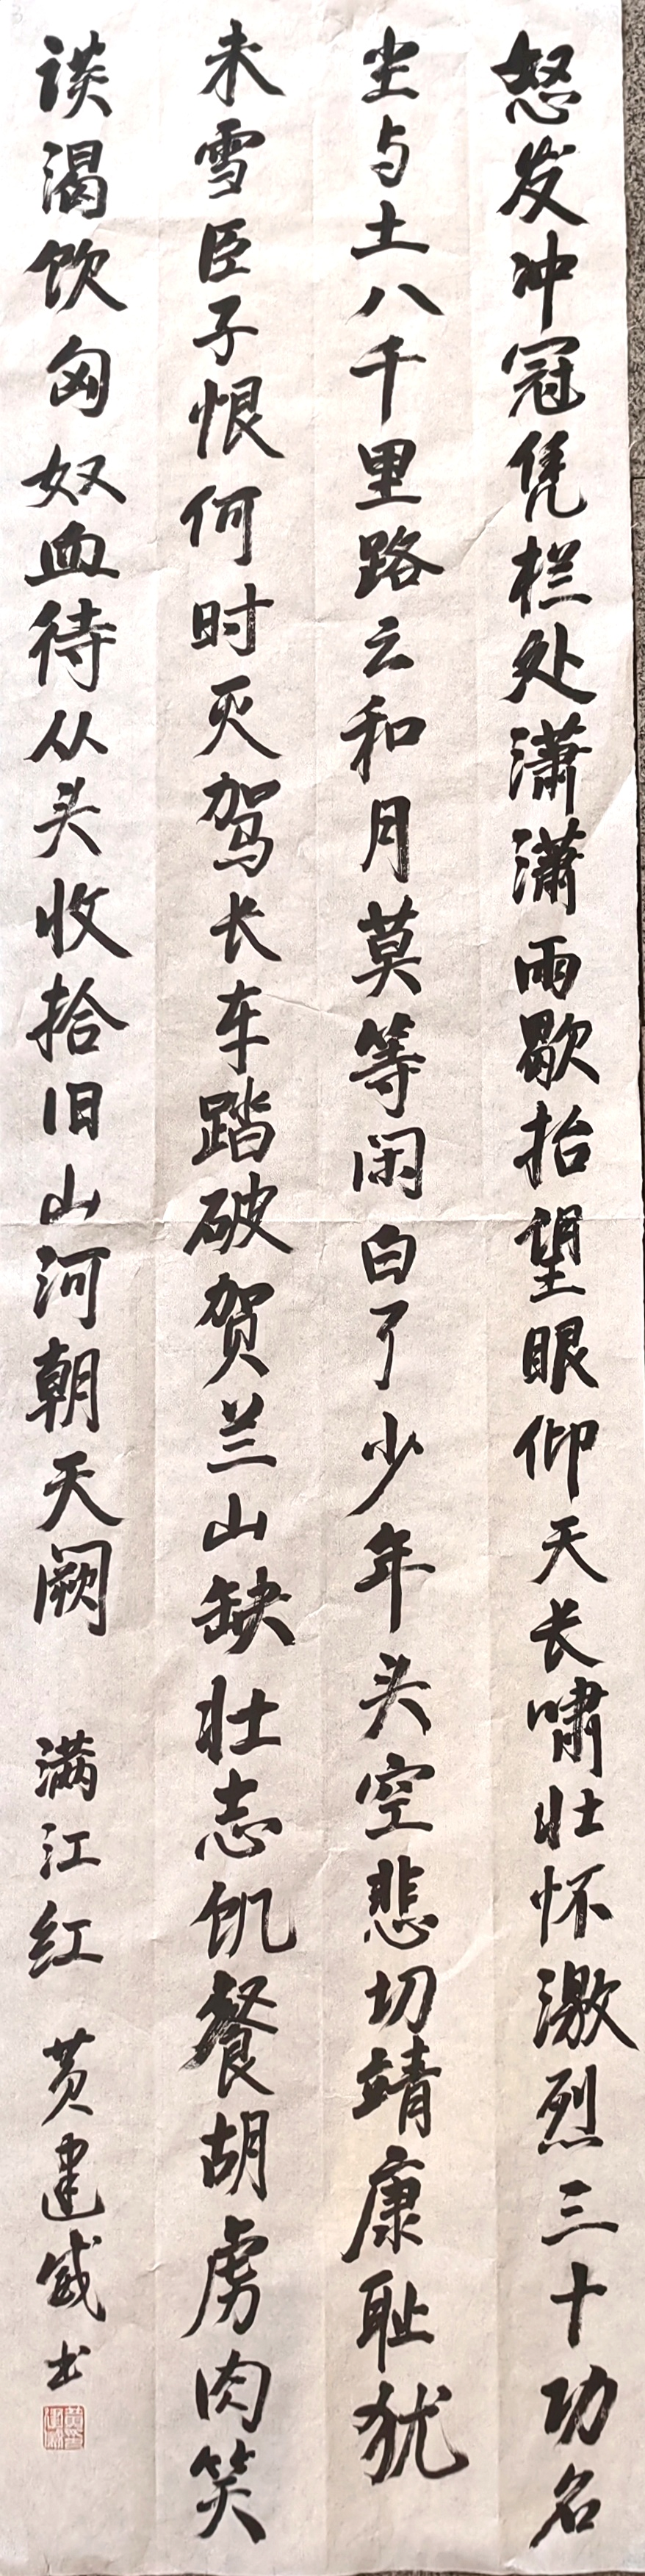 怒发冲冠凭栏处潇潇雨歇抬望眼仰天长啸壮怀激烈三十功名
尘与土八千里路云和月莫等闲白了少年头空悲切靖康耻犹
未雪臣子恨何时灭驾长车踏破贺兰山缺壮志饥餐胡虏肉笑
谈渴饮匈奴血待从头收拾旧山河朝天阙 满江红 黄建威书